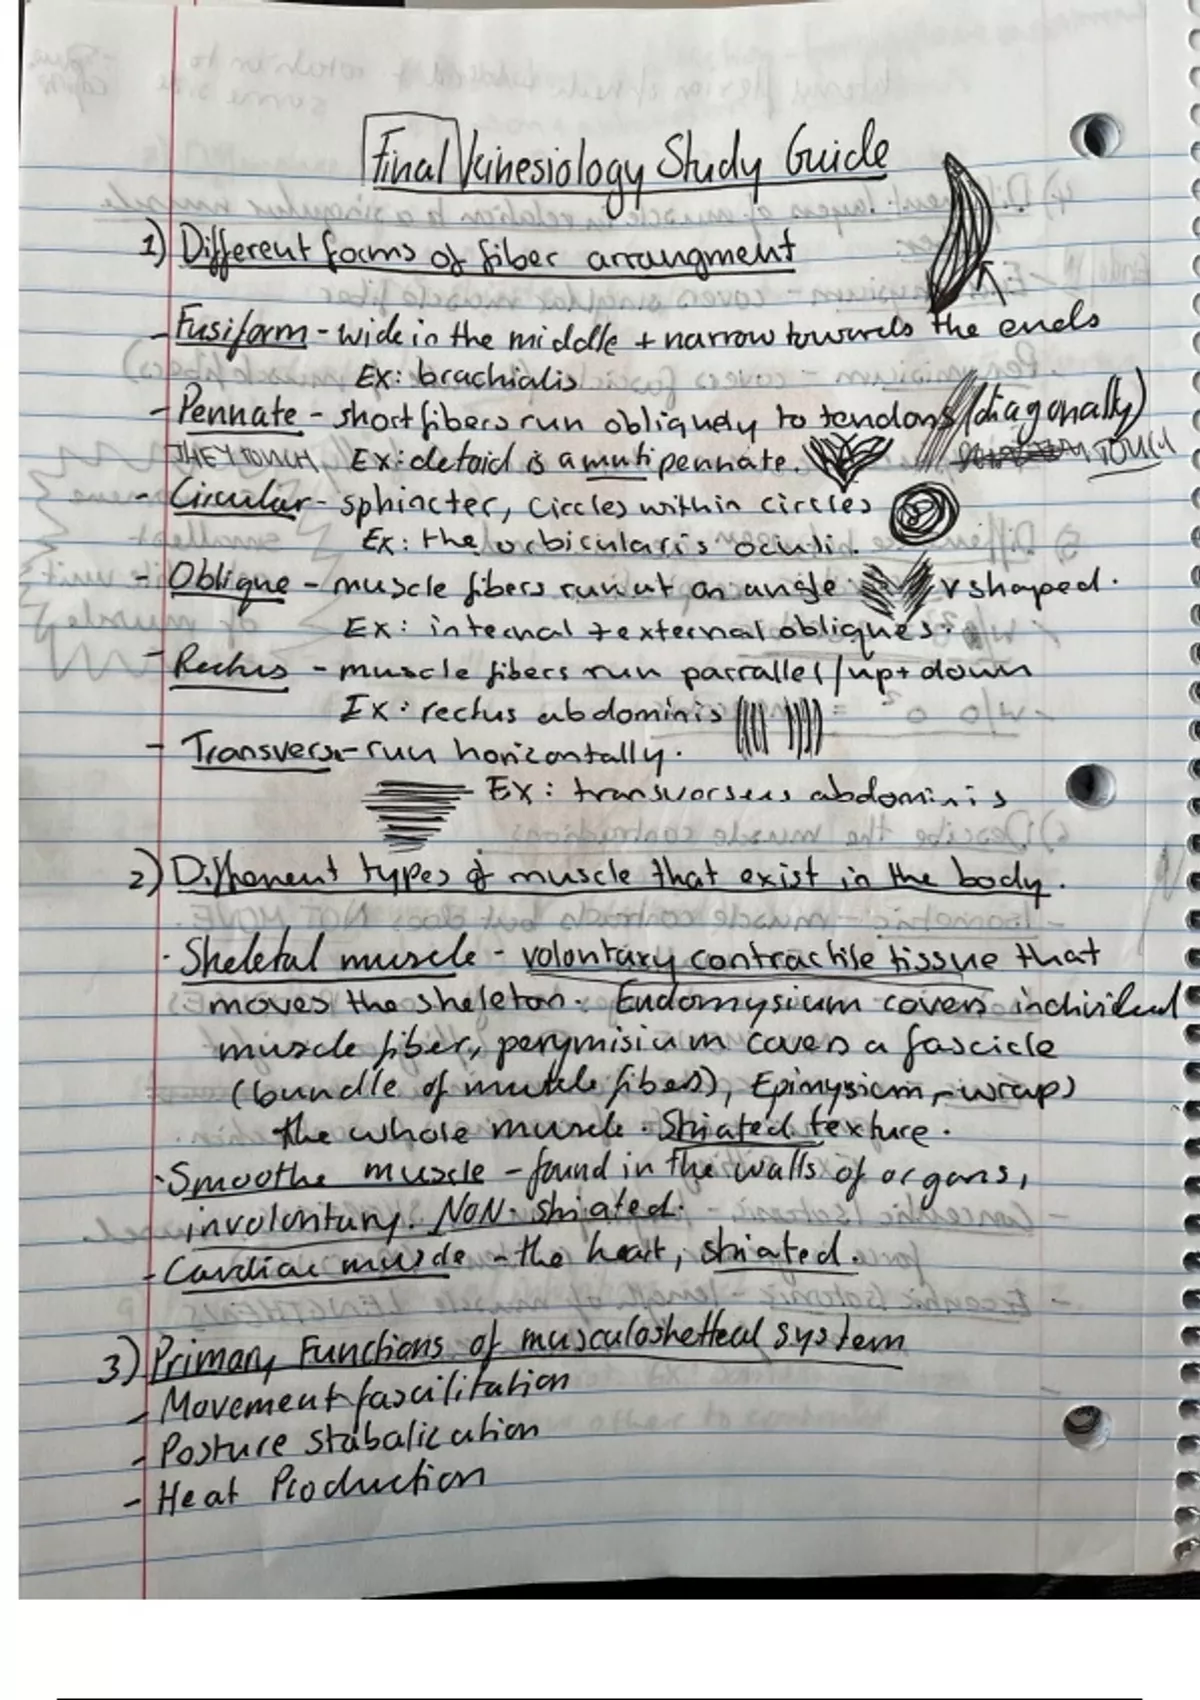 Final Kinesiology Study Guide
1) Different forms of fiber arrangment
- Fusiform - wide in the middle + narrow towards the ends
Ex: brachialis
- Pennate - short fibers run obliquely to tendons (diagonally)
THEY TOUCH Ex: deltoid is a mutipennate. TOUCH
- Circular - sphincter, circles within circles
Ex: the orbicularis oculi.
- Oblique - muscle fibers run at an angle v shaped.
Ex: internal + external obliques.
- Rectus - muscle fibers run parrallel/up + down
Ex: rectus abdominis
- Transverse - run horizontally.
Ex: transversus abdominis
2) Different types of muscle that exist in the body.
· Skeletal muscle - volontary contractile tissue that
moves the skeleton. Endomysium covers individual
muscle fiber, perymisium covers a fascicle
(bundle of muscle fibers), Epimysium - wraps
the whole muscle. Striated texture.
· Smoothe muscle - found in the walls of organs,
involontary. NON-striated.
- Cardiac muscle - the heart, striated.
3) Primary Functions of musculoskelteal system
- Movement fascilitation
- Posture stabalization
- Heat Production